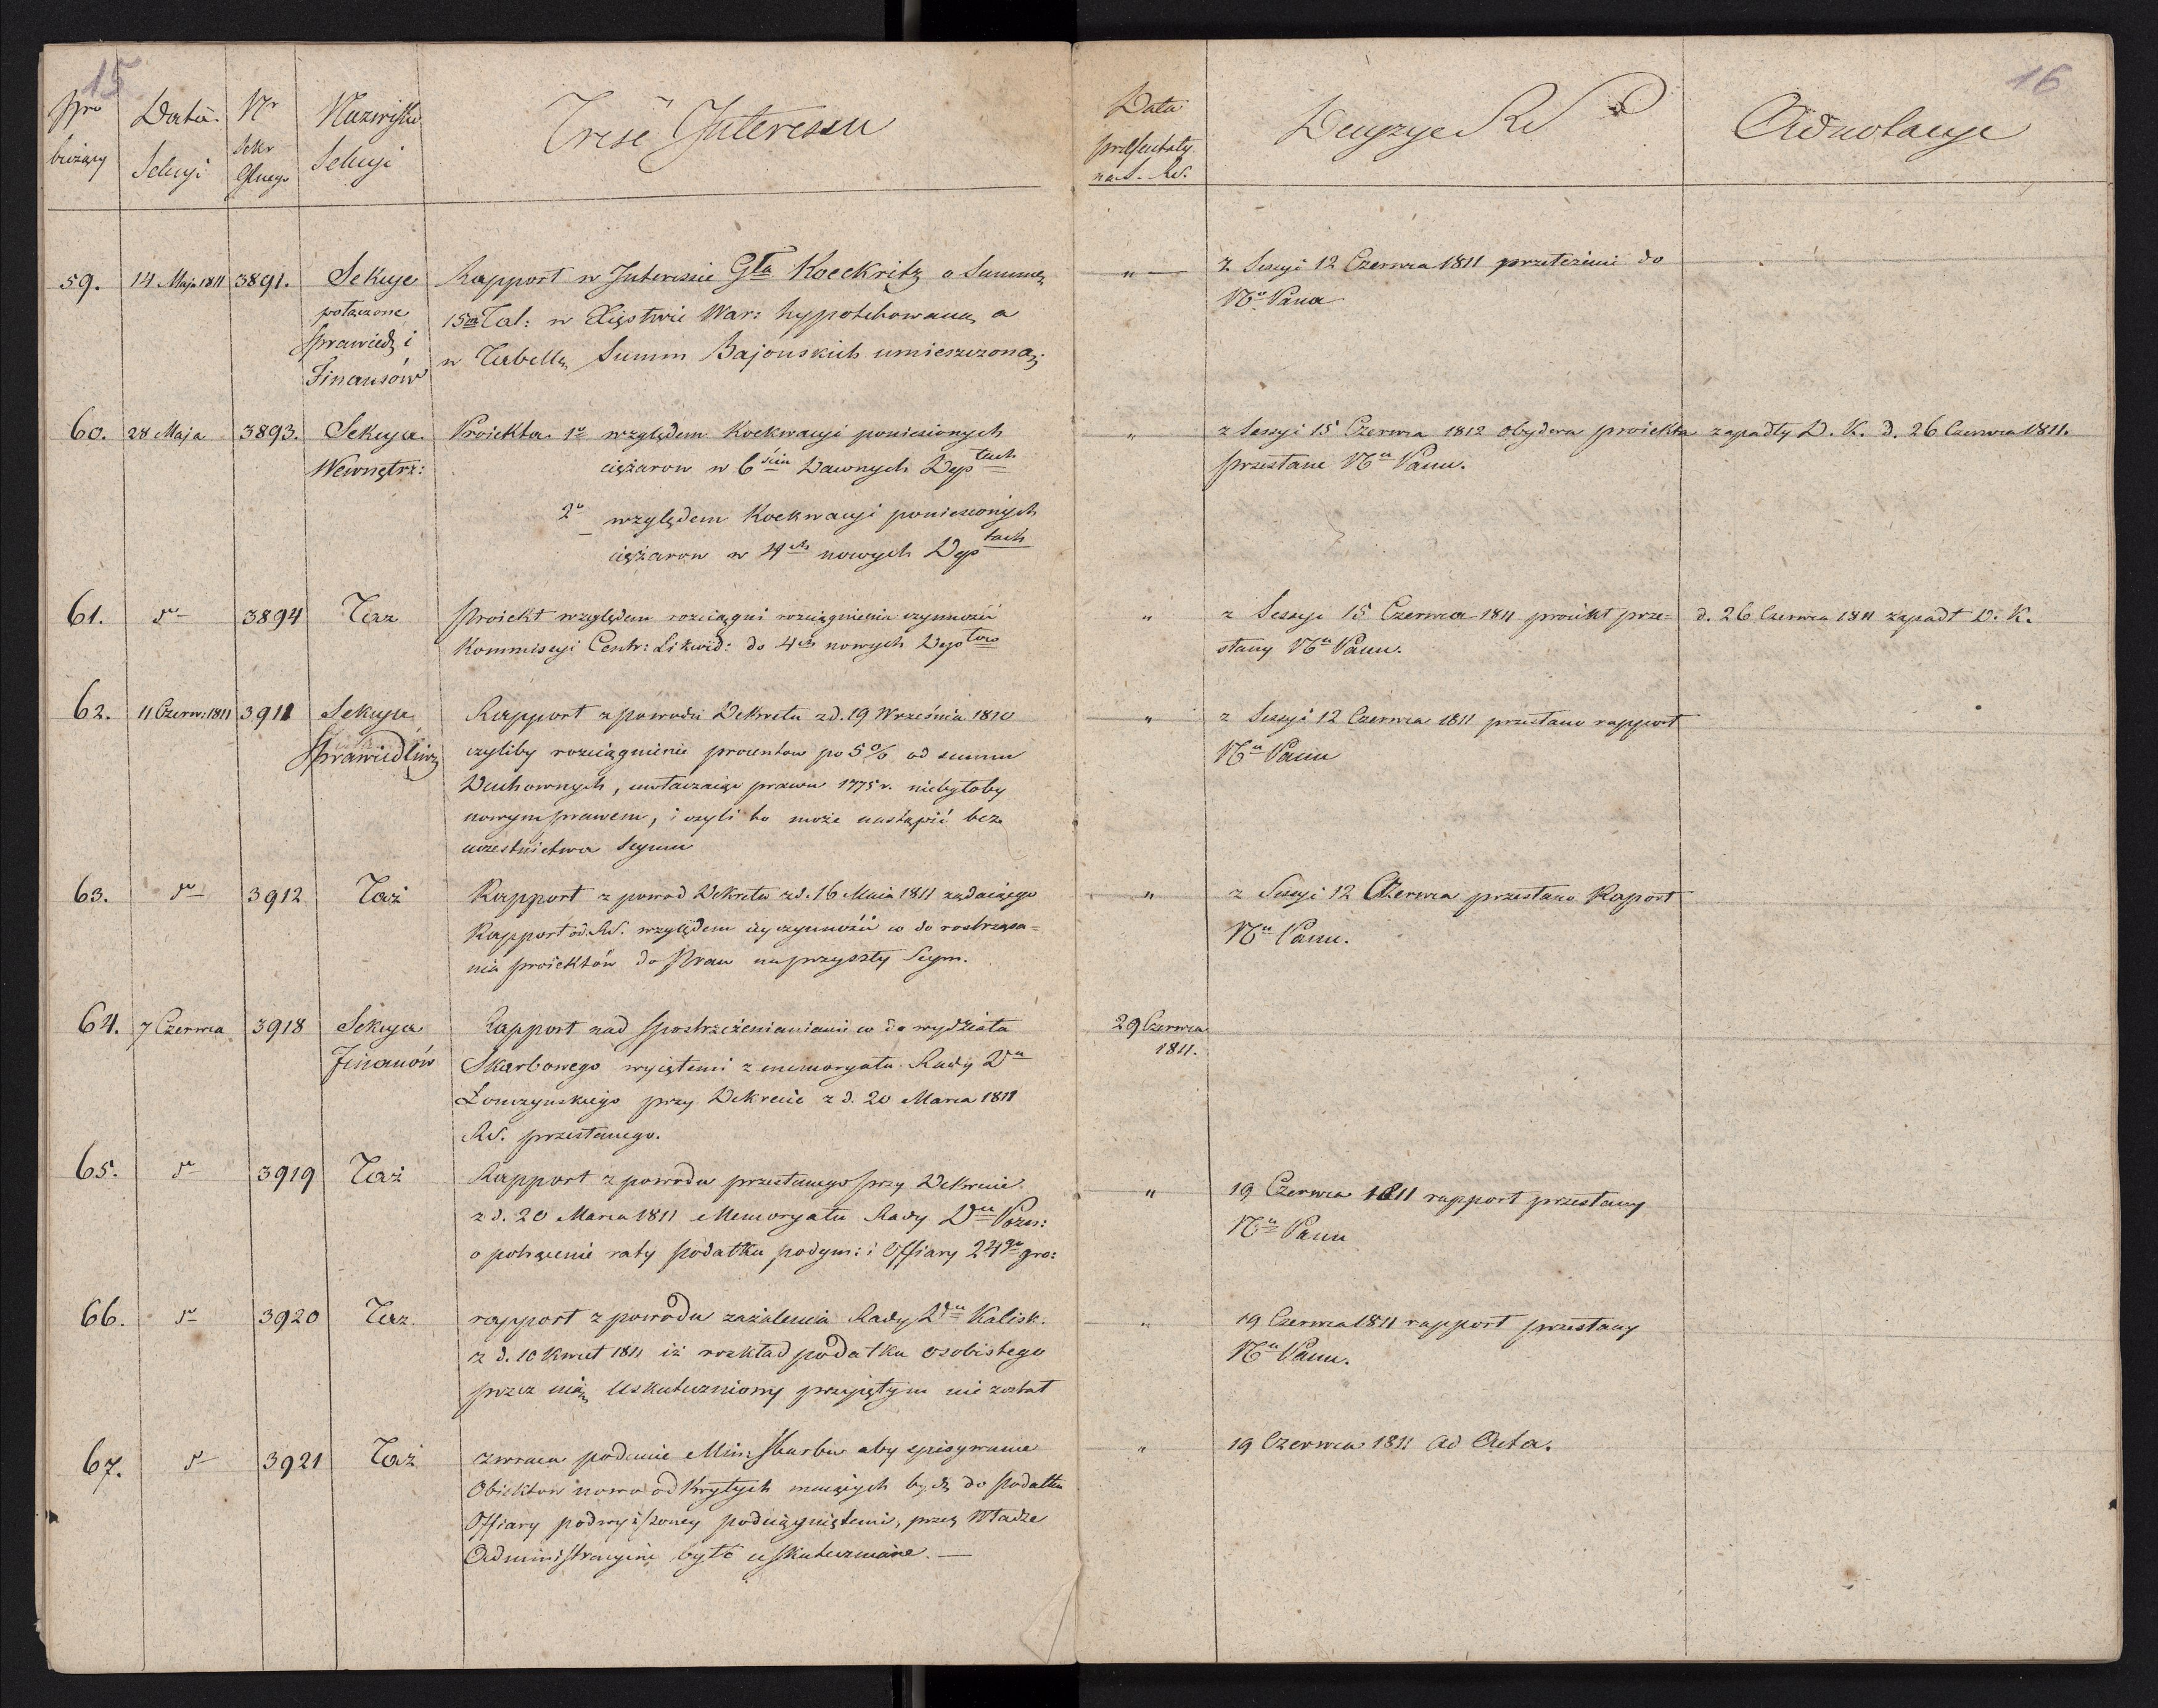 15
16
Nro bieżący
Data Sekcyi
Nr Sekr Glnego
Nazwisko Sekcyi
Treść Interessu
Data prezentaty na S. RS.
Decyzye RS
Adnotacye
59. 14 Maja 1811 3891. Sekcye połączone Sprawiedl i Finansów
Rapport w Interessie Gła Koeckritz o Summę
15m Tal: w Xięstwie War: hypotekowaną a
w Tabellę Summ Bajońskich umieszczoną.
" z Sessyi 12 Czerwca 1811 przełożenie do
Nu Pana
60. 28 Maja 3893. Sekcya Wewnętrz:
Proiekta 1o względem Koekwacyi poniesionych
ciężarow w 6ściu Dawnych Deptach
2o względem Koekwacyi poniesionych
ciężarow w 4ch nowych Deptach
" z Sessyi 15 Czerwca 1812 obydwa proiekta
przesłane Nu Panu.
zapadły D. K. d. 26 Czerwca 1811.
61. d- 3894 Taz
Proiekt względem rozciągni rozciągnienia czynności
Kommissyi Centr: Likwid: do 4ch nowych Deptow
" z Sessyi 15 Czerwca 1811 proiekt prze-
słany Nu Panu.
d. 26 Czerwca 1811 zapadł D. K.
62. 11 Czerw: 1811 3911 Sekcya Sprawiedliwz
Rapport z powodu Dekretu z d. 19 Września 1810
czyliby rozciągnienie procentow po 5% od summ
Duchownych, uwłaczaiąc prawu 1775 r. niebyłoby
nowym prawem, i czyli to może nastąpić bez
uczestnictwa Seymu
" z Sessyi 12 Czerwca 1811 przesłano rapport
Nu Panu
63. d- 3912 Taż
Rapport z powod Dekretu z d. 16 Maia 1811 żądaiącego
Rapport od RS. względem iey czynności co do roztrząsa=
nia proiektów do Praw na przyszły Seym.
" z Sessyi 12 Czerwca przesłano Raport
Nu Panu.
64. 7 Czerwca 3918 Sekcya Finanów
Rapport nad spostrzeżenianiami co do wydziału
Skarbowego wyiętemi z memoryału Rady Du
Łomżyńskiego przy Dekrecie z d. 20 Marca 1811
RS. przesłanego.
29 Czerwca 1811.
65. d- 3919 Taż
Rapport z powodu przesłanego przy Dekrecie
z d. 20 Marca 1811 Memoryału Rady Du Pozn:
o potrącenie raty podatku podym: i Offiary 24go gro:
" 19 Czerwca 1811 rapport przesłany
Nu Panu
66. d- 3920 Taz
rapport z powodu zażalenia Rady Du Kalisk.
z d. 10 Kwiet 1811 iż rozkład podatku osobistego
przez nią uskuteczniony przyiętym nie został
" 19 Czerwca 1811 rapport przesłany
Nu Panu.
67. d- 3921 Taż
zwraca podanie Min: Skarbu aby spisywanie
Obiektow nowo odkrytych maiących bydź do podatku
Offiary podwyższoney podciągniętemi, przez Władze
Administracyine było uskuteczniane. —
" 19 Czerwca 1811 ad Acta.